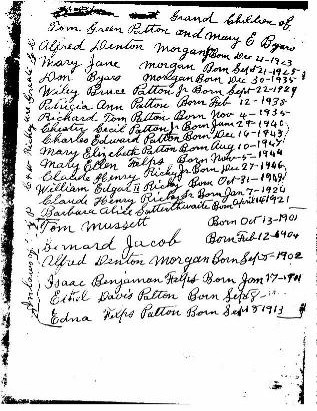 Grand Children of
Tom Green Patton and Mary E Byars
Alfred Denton Morgan Born Dec 4-1923
Mary Jane Morgan Born Sept 21-1925
Don Byars Morgan Born Dec 30-1935
Wiley Bruce Patton Jr Born Sept-22-1929
Patricia Ann Patton Born Feb 12-1938
Richard Tom Patton Born Nov 4-1935
Chester Cecil Patton Jr Born June 29-1940
Charles Edward Patton Born Dec 14-1943
Mary Elizabeth Patton Born Aug 10-1947
Mary Ellen Felps Born Nov-5-1944
Claude Henry Ricky Jr Born Dec 27-1946
William Edgar II Ricky Born Oct-31-1949
Claud Henry Ricky Sr Born Jan 7-1924
Barbara Satterthwaite Born April 1921
Tom Mussett Born Oct 13-1901
Bernard Jacob Born Feb 12-1904
Alfred Denton Morgan Born Sep 5-1902
Isaac Benjaman Felps Born Jan 17-1901
Ethel Davis Patton Born Sept 8
Edna Felps Patton Born Sep 8 1913